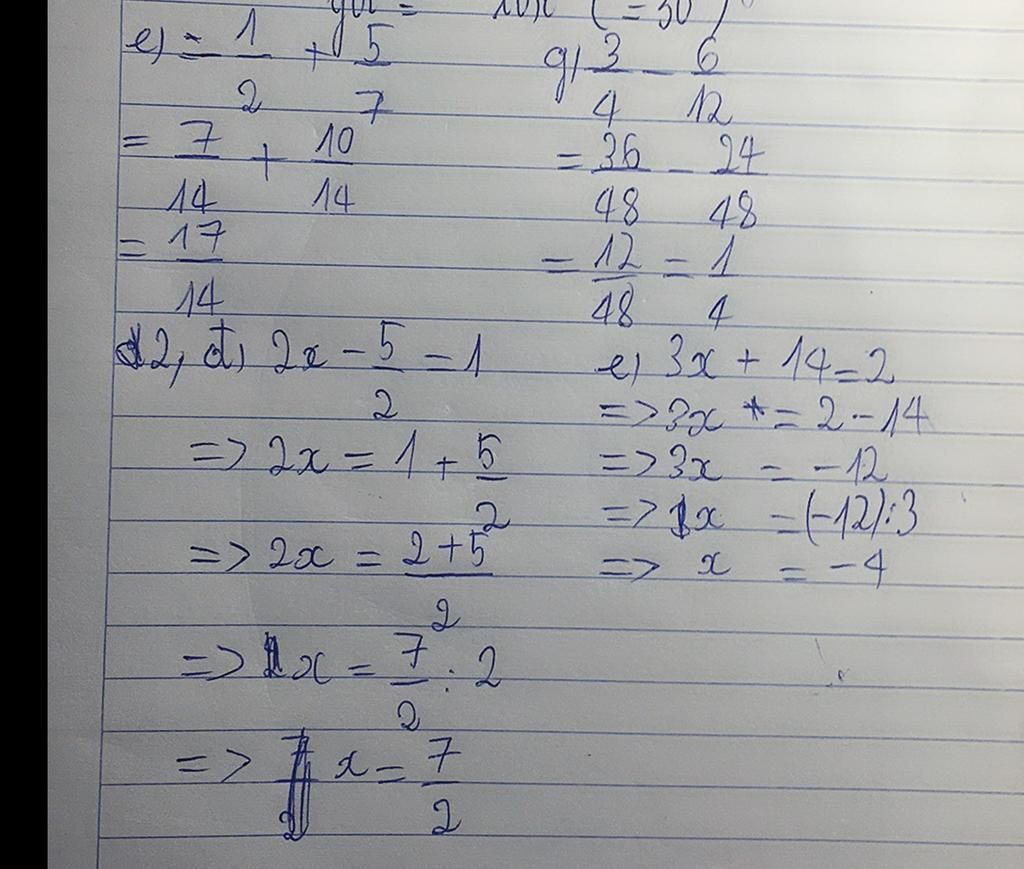 (= 30)
e) - 1/2 + 5/7
= 7/14 + 10/14
= 17/14
g) 3/4 - 6/12
= 36/48 - 24/48
= 12/48 = 1/4
2, d) 2x - 5/2 = 1
=> 2x = 1 + 5/2
=> 2x = (2+5)/2
=> x = 7/2 : 2
=> x = 7/2
e) 3x + 14 = 2
=> 3x = 2 - 14
=> 3x = -12
=> x = (-12) : 3
=> x = -4